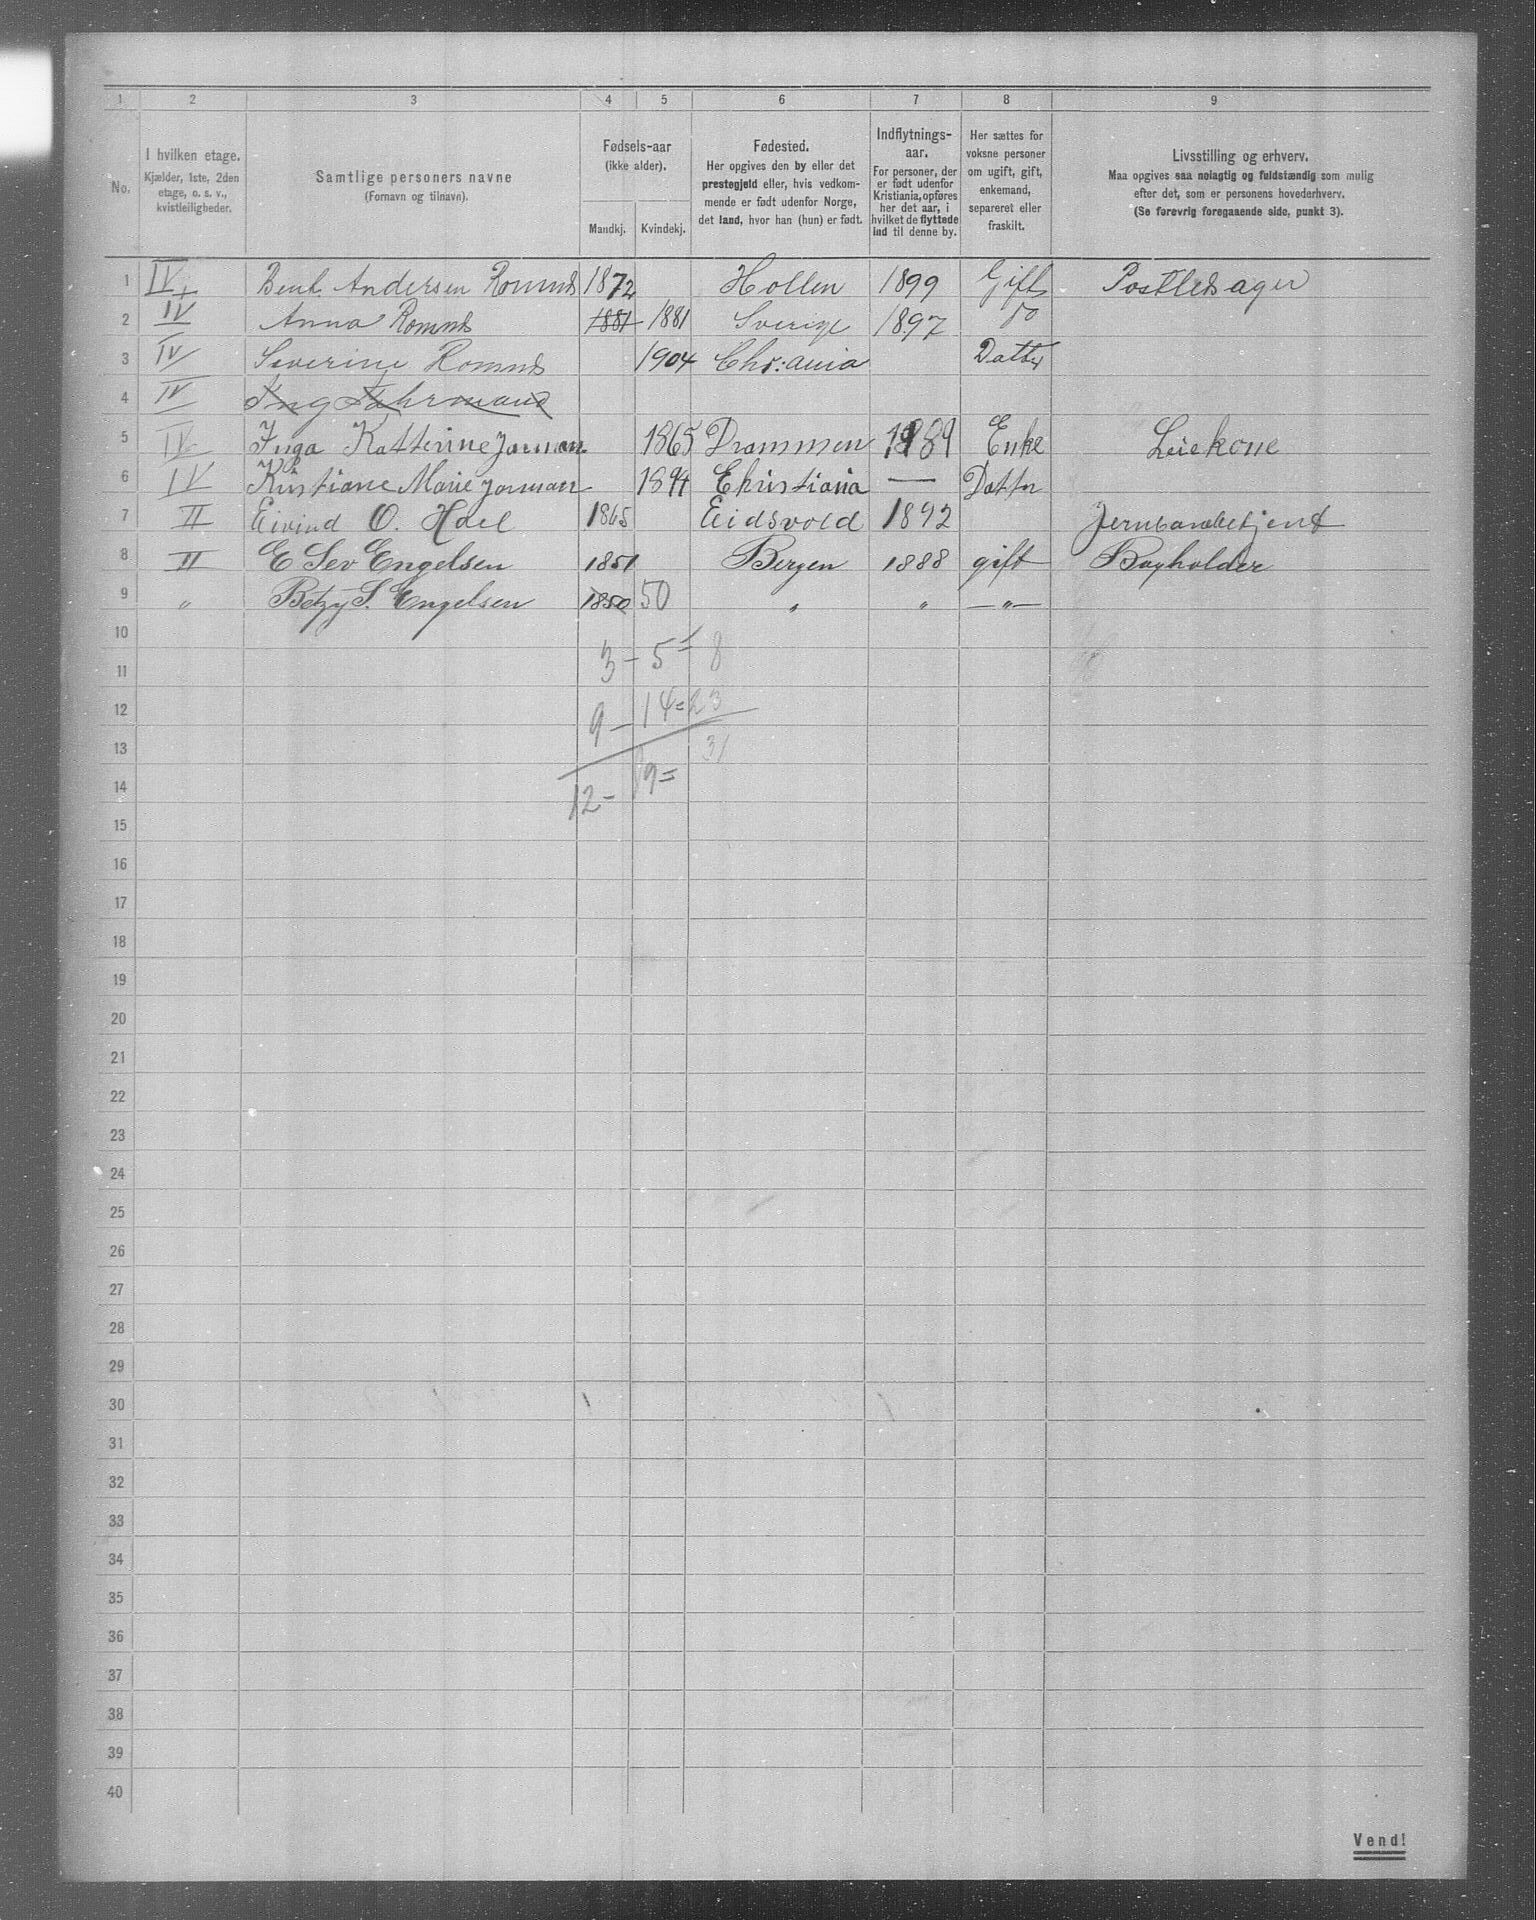 1 2 3 4 5 6 7 8 9
No.
I hvilken etage.
Kjælder, 1ste, 2den
etage, o. s. v.,
kvistleiligheder.
Samtlige personers navne
(Fornavn og tilnavn).
Fødsels-aar
(ikke alder).
Mandkj. Kvindekj.
Fødested.
Her opgives den by eller det
prestegjeld eller, hvis vedkom-
mende er født udenfor Norge,
det land, hvor han (hun) er født.
Indflytnings-
aar.
For personer, der
er født udenfor
Kristiania, opføres
her det aar, i
hvilket de flyttede
ind til denne by.
Her sættes for
voksne personer
om ugift, gift,
enkemand,
separeret eller
fraskilt.
Livsstilling og erhverv.
Maa opgives saa nøiagtig og fuldstændig som mulig
efter det, som er personens hovederhverv.
(Se forøvrig foregaaende side, punkt 3).
1 IV Bent Andersen 1872 Hollen 1899 Gift
2 IV Anna 1881 1881 Sverige 1897 do
3 IV Severine 1904 Chr:ania Datter
4 IV
5 IV Inga Katterine Jorman 1865 Drammen 1889 Enke Leiekone
6 IV Kristiane Marie Jorman 1894 Christiania — Datter
7 II Eivind O. Hoel 1865 Eidsvold 1892 Jernbanebetjent
8 II E Sev Engelsen 1851 Bergen 1888 gift Bogholder
9 " Betzy S. Engelsen 1850 50 " " —"—
10
3 - 5 = 8
11
12
9 - 14 = 23
13
31
14
12 - 19 =
15
16
17
18
19
20
21
22
23
24
25
26
27
28
29
30
31
32
33
34
35
36
37
38
39
40
Vend!